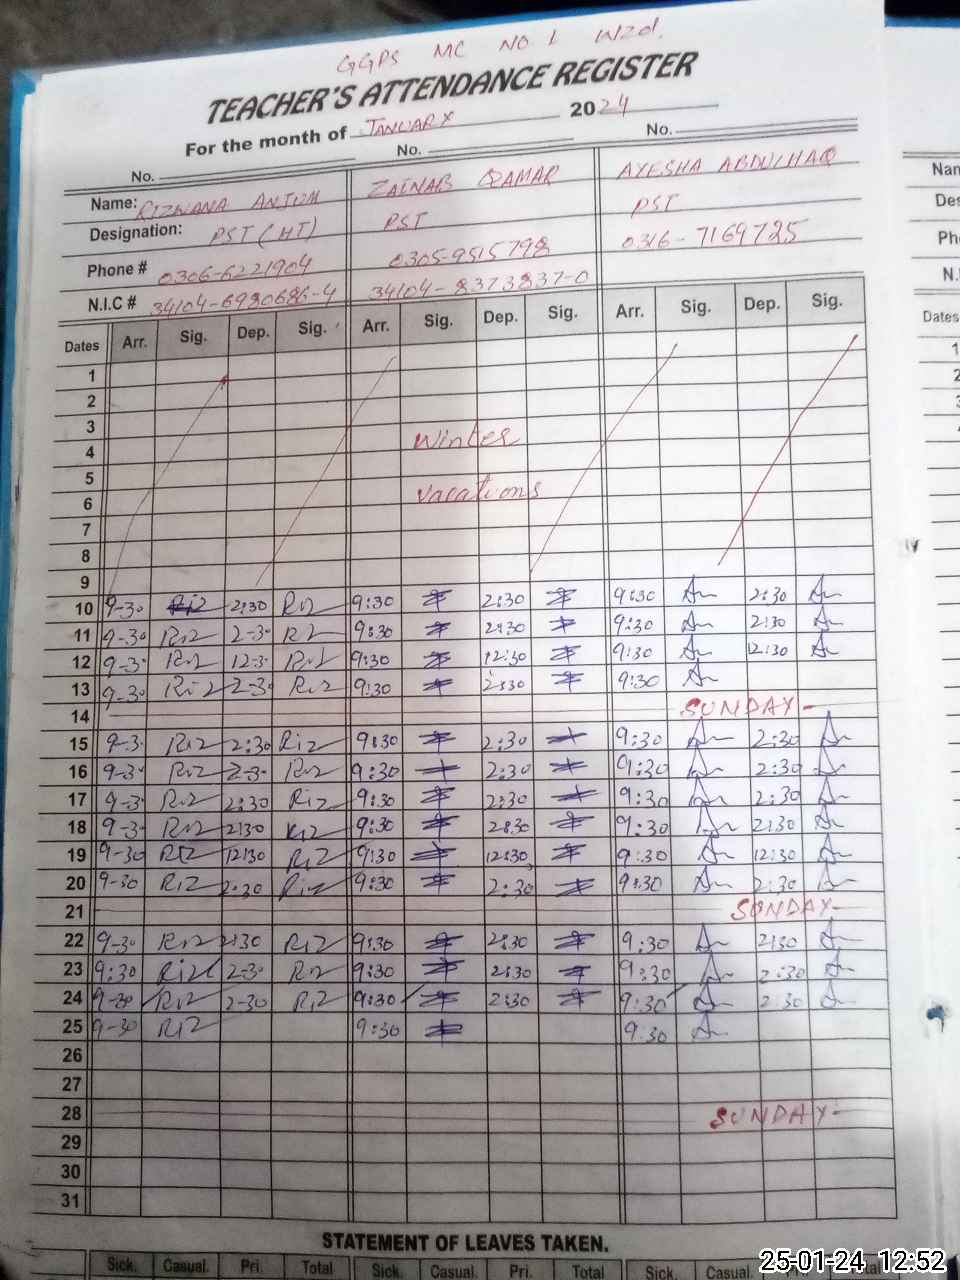 GGPS MC NO 1 Wzd.
TEACHER'S ATTENDANCE REGISTER
For the month of JANUARY 2024
No. No. No.
Name: RIZWANA ANJUM ZAINAB QAMAR AYESHA ABDULHAQ
Designation: PST (HT) PST PST
Phone # 0306-6221904 0305-9515798 0316-7169725
N.I.C # 34104-6930686-4 34104-8373837-0
Dates Arr. Sig. Dep. Sig. Arr. Sig. Dep. Sig. Arr. Sig. Dep. Sig.
1
2
3
4 Winter
5
6 vacations
7
8
9
10 9-30 Riz 2:30 Riz 9:30 2:30 9:30 2:30
11 9-30 Riz 2-30 Riz 9:30 2:30 9:30 2:30
12 9-30 Riz 12-30 Riz 9:30 12:30 9:30 12:30
13 9-30 Riz 2-30 Riz 9:30 2:30 9:30
14 SUNDAY
15 9-30 Riz 2:30 Riz 9:30 2:30 9:30 2:30
16 9-30 Riz 2-30 Riz 9:30 2:30 9:30 2:30
17 9-30 Riz 2:30 Riz 9:30 2:30 9:30 2:30
18 9-30 Riz 2:30 Riz 9:30 2:30 9:30 2:30
19 9-30 Riz 12:30 Riz 9:30 12:30 9:30 12:30
20 9-30 Riz 2:30 Riz 9:30 2:30 9:30 2:30
21 SUNDAY
22 9-30 Riz 2:30 Riz 9:30 2:30 9:30 2:30
23 9:30 Riz 2-30 Riz 9:30 2:30 9:30 2:30
24 9-30 Riz 2-30 Riz 9:30 2:30 9:30 2:30
25 9-30 Riz 9:30 9:30
26
27
28 SUNDAY
29
30
31
STATEMENT OF LEAVES TAKEN.
Sick. Casual. Pri. Total Sick. Casual. Pri. Total Sick. Casual. Pri. Total
25-01-24 12:52